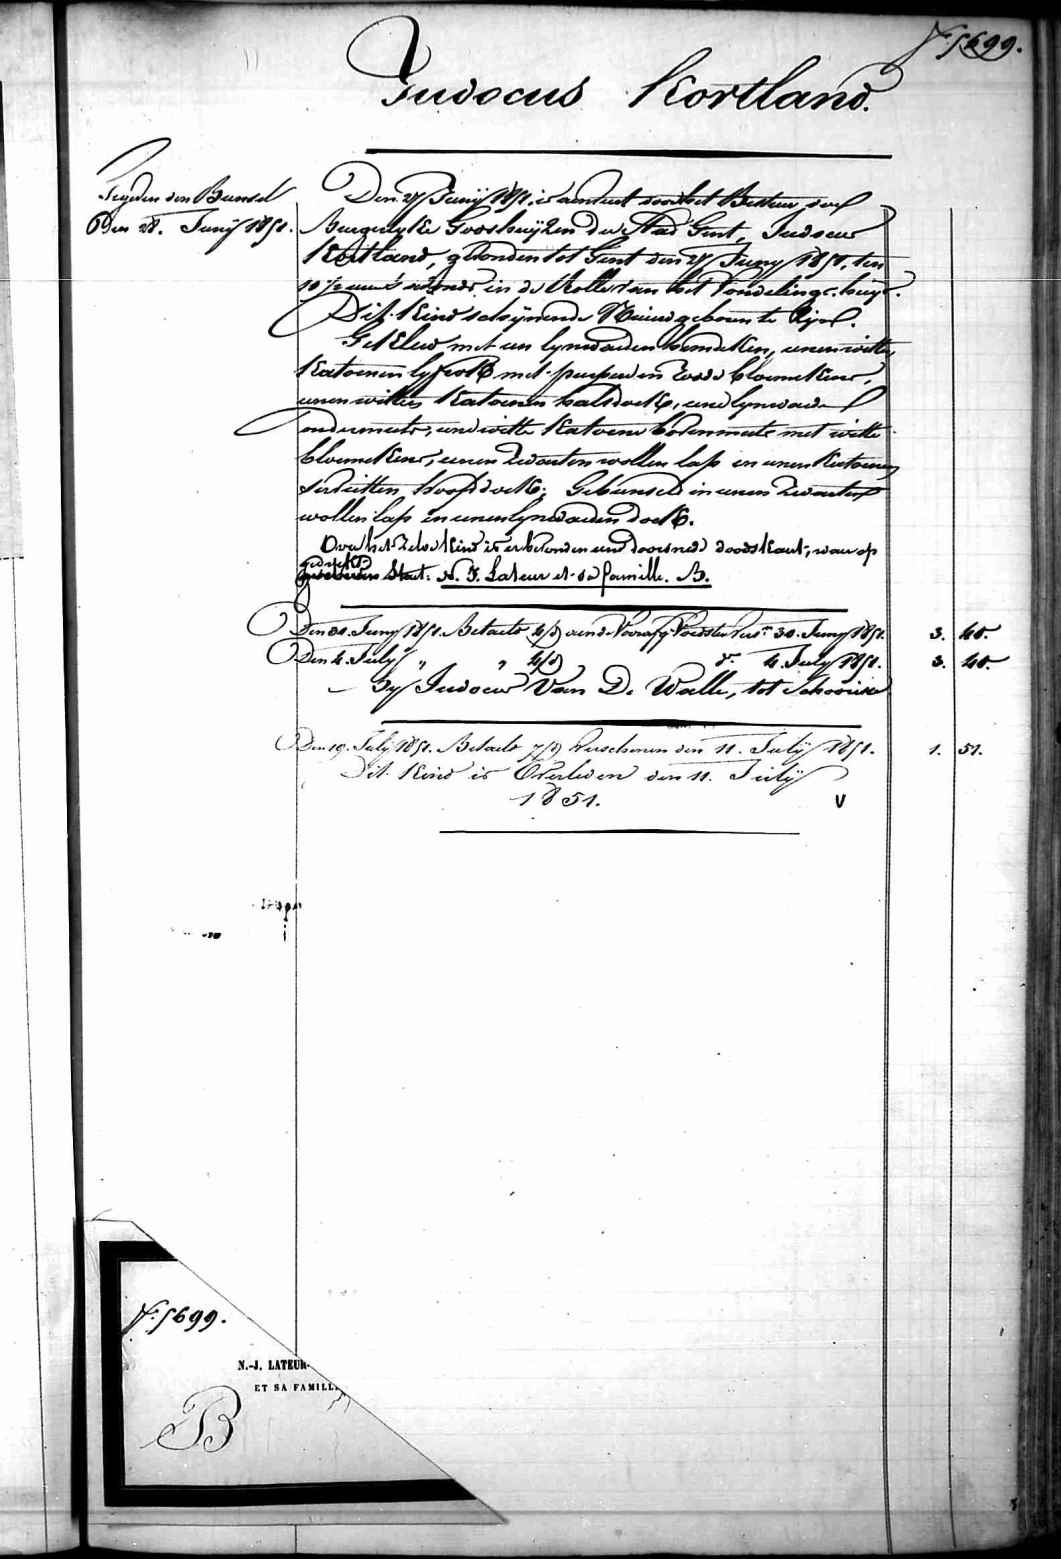 N.° 5699.
Judocus Kortland.
Tegen den Bunsel
Den 28. Junij 1851.
Den 27 Junij 1851. is door het Bestuer der
Burgerlyke Godshuijzen der Stad Gent, Judocus
Kortland, gevonden tot Gent den 27 Juny 1851, ten
10 1/2 uur 's avonds in de Rolle van het Vondelings-huys.
Dit Kind schynende Nieuwgeboren te Zijn.
Gekleed met een lynwaeden hemdeken, eenen witten
Katoenen lyfrok met purpere en roode bloemekens,
eenen witten Katoenen halsdoek, eene lynwaede
ondermuts, eene witte Katoene bovenmuts met witte
bloemekens, eenen zwarten wollen lap en eenen Katoenen
versleten hoofddoek; Gebunseld in eenen zwarten
wollen lap en eenen lynwaeden doek.
Over het zelve Kind is er bevonden eene doorsnede doodskaert, waer op
gedrukt
staet: N. J. Lateur et sa famille. B.
Den 30. Juny 1851. Betaelt 4/5 aen de Voedster 30. Juny 1851. 3. 40.
Den 4. July " " 4/5 d.° 4. July 1851. 3. 40.
By Judocus Van De Walle, tot Schoorisse
Den 19. July 1851. Betaelt verschenen den 11. July 1851. 1. 51.
Dit Kind is Overleden den 11. Julij
1851. V
N.° 5699.
N.-J. LATEUR-
ET SA FAMILLE
B